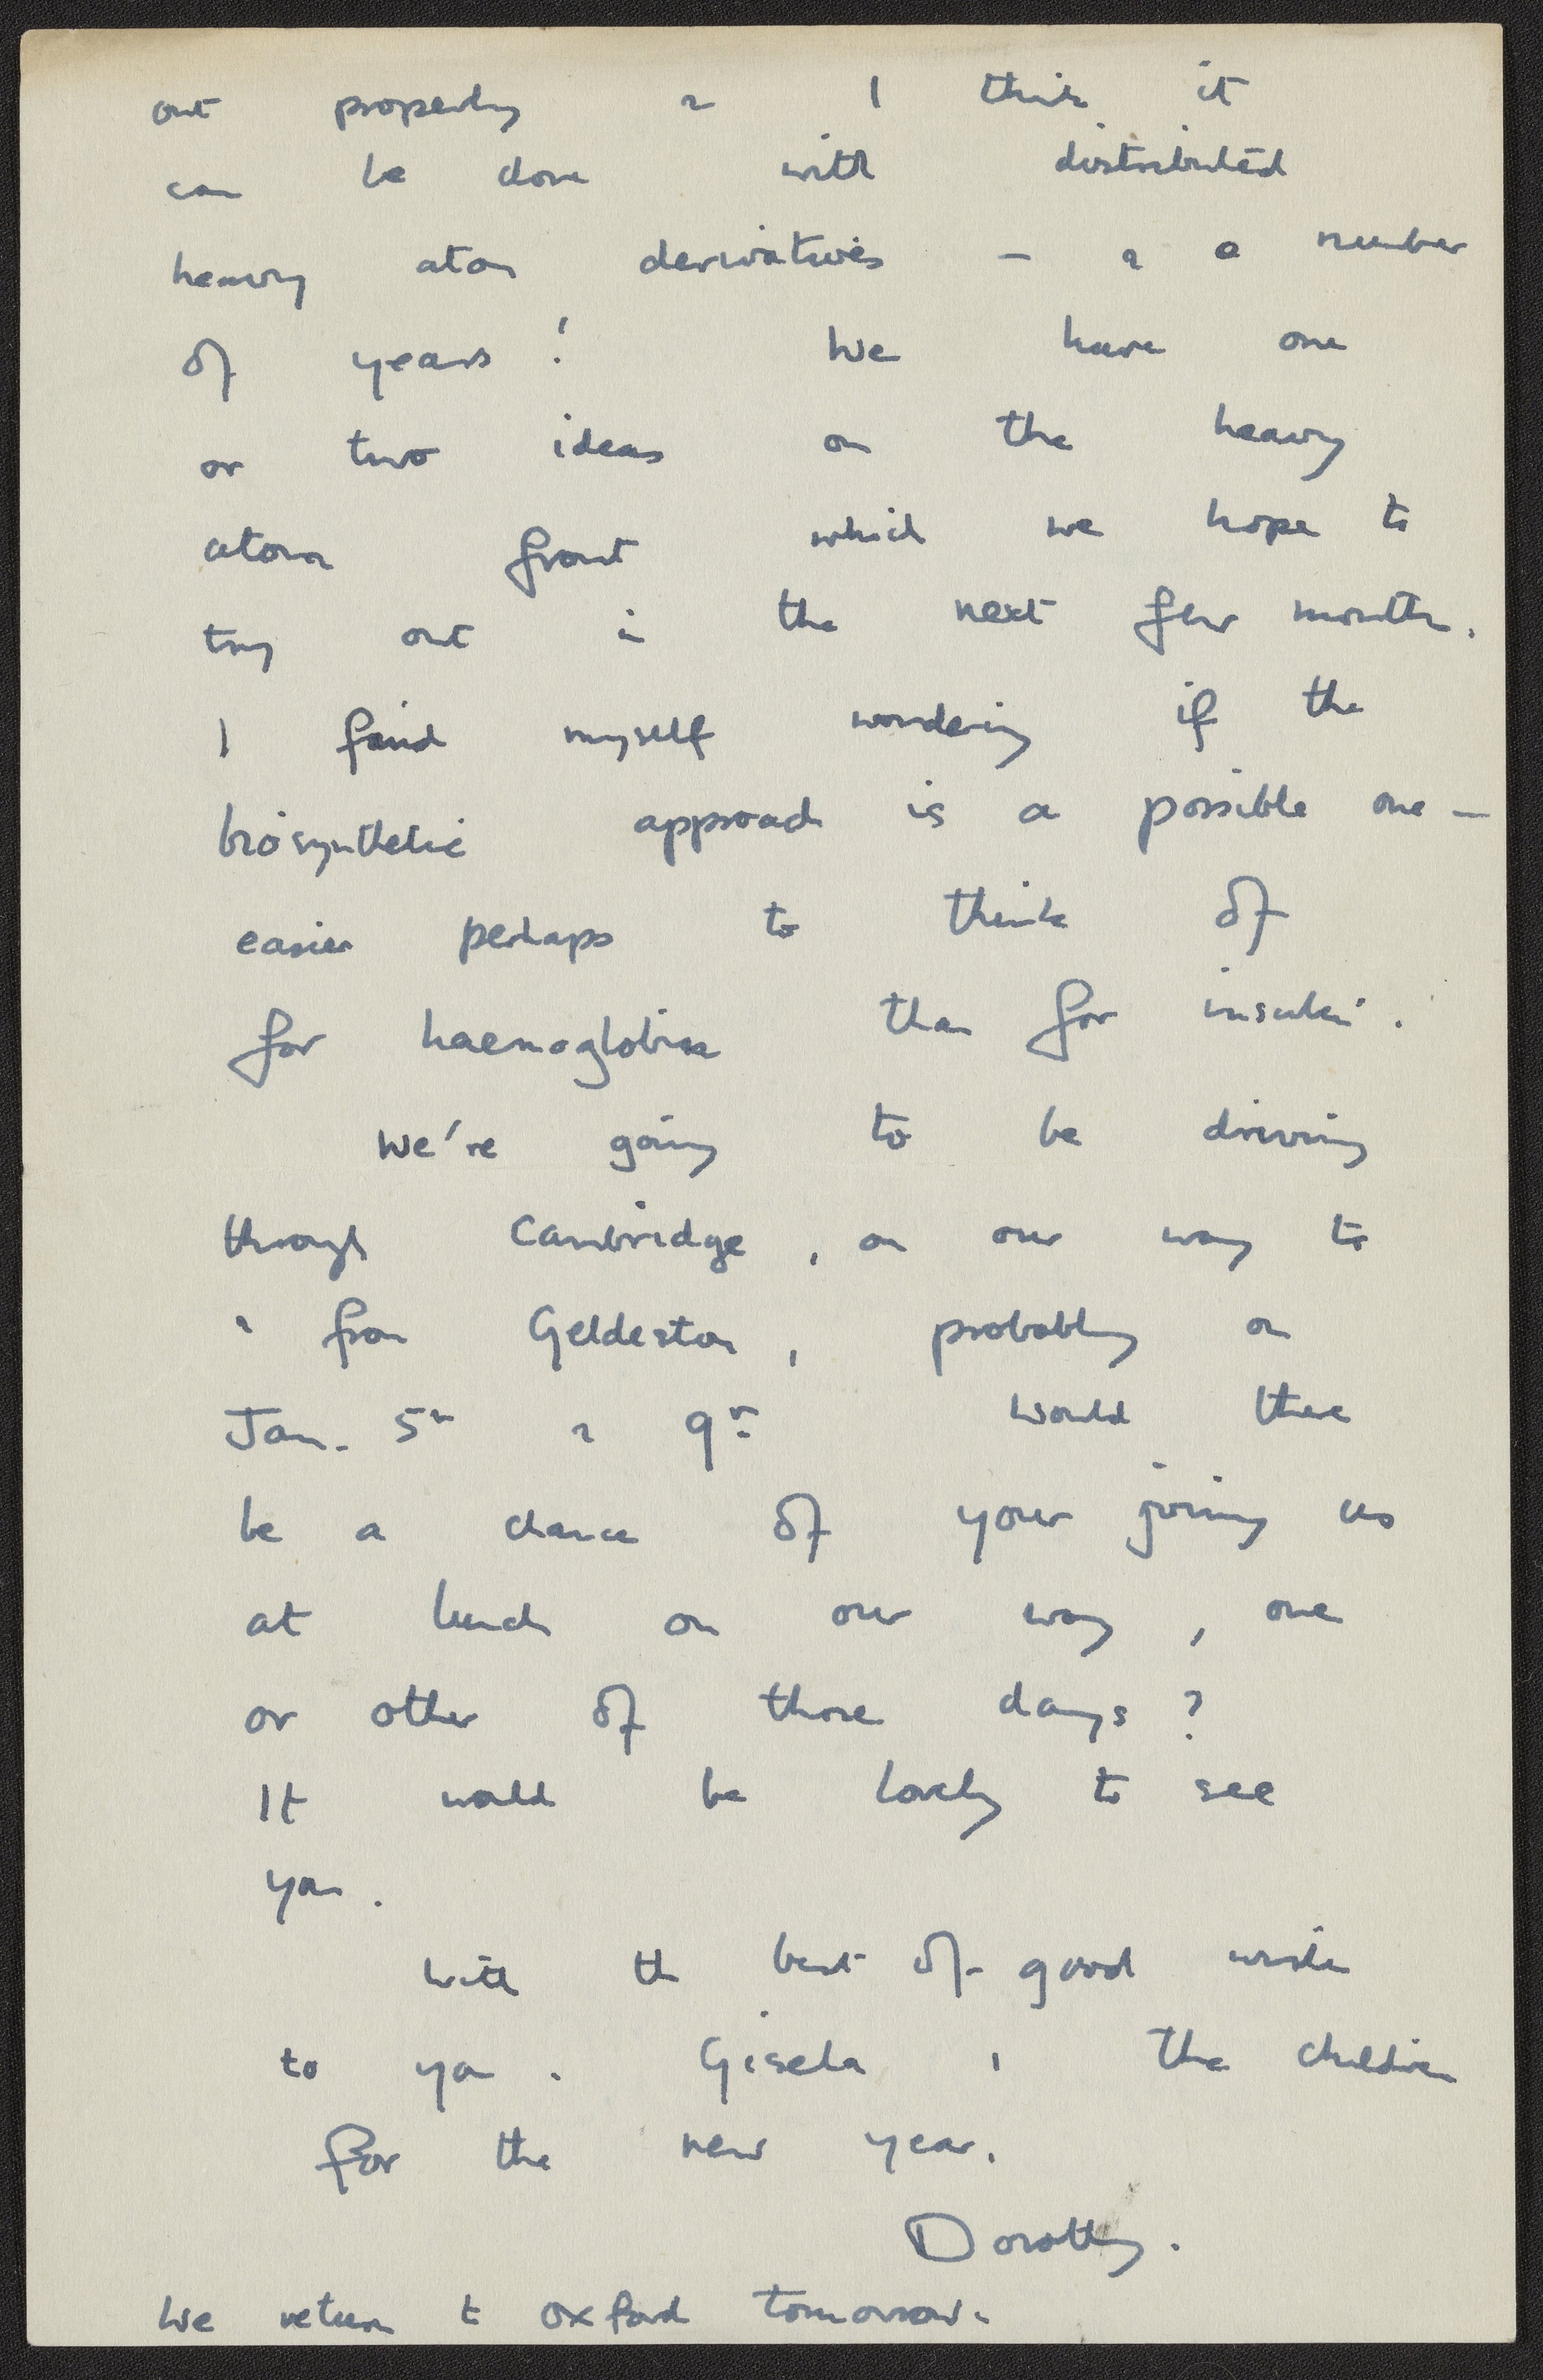 out properly & I think it
can be done with distributed
heavy atom derivatives – & a number
of years! We have one
or two ideas on the heavy
atom front which we hope to
try out in the next few months.
I find myself wondering if the
biosynthetic approach is a possible one –
easier perhaps to think of
for haemoglobin than for insulin.
We're going to be driving
through Cambridge, on our way to
& from Geldeston, probably on
Jan. 5th & 9th Would there
be a chance of your joining us
at lunch on our way, one
or other of those days?
It would be lovely to see
you.
With the best of good wishes
to you. Gisela, the children
for the new year.
Dorothy.
We return to Oxford tomorrow.